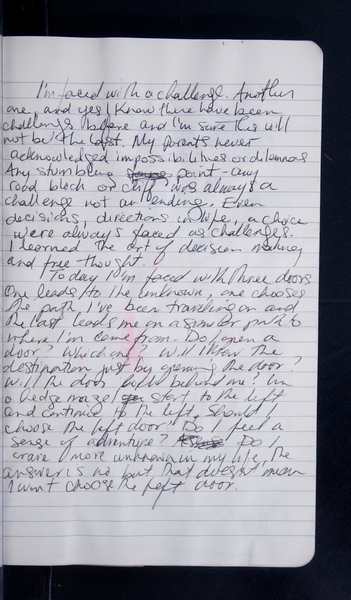 I'm faced with a challenge. Another
one, and yes I know there have been
challenges before and I'm sure this will
not be the last. My parents never
acknowledged impossibilities or dilemmas
Any stumbling point - any
road block or cliff was always a
challenge not an ending. Even
decisions, directions in life, a choice
were always faced as challenges.
I learned the art of decision making
and free thought.
Today I'm faced with three doors
One leads to the unknown, one chooses
the path I've been traveling on and
the last leads me on a similar path to
where I'm come from. Do I open a
door? Which one? Will I know the
destination just by opening the door?
Will the door behind me? In
a hedge maze I start to the left
and continue to the left. Should I
choose the left door? Do I feel a
sense of adventure? Do I
crave more unknown in my life, the
answer is no but that doesn't mean
I won't choose the left door.